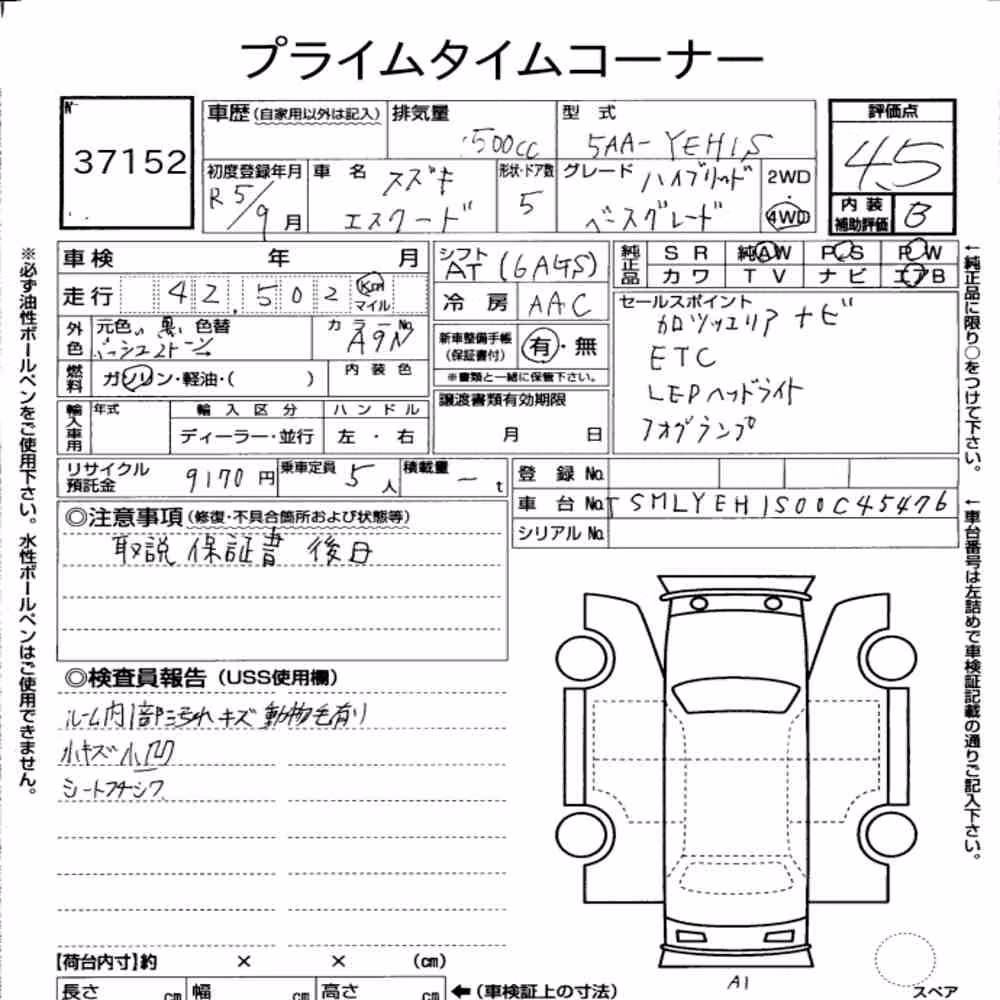 プライムタイムコーナー
No
37152
車歴 (自家用以外は記入)
排気量
1500cc
型 式
5AA-YEH1S
評価点
4.5
初度登録年月
R5/9月
車 名
スズキ
エスクード
形状・ドア数
5
グレード ハイブリッド
ベースグレード
2WD
・
4WD
内装
補助評価
B
車検 年 月
走行 42,502 Km
マイル
外色
元色 黒 色替
カラーNo.
A9N
燃料
ガソリン・軽油・( )
内装色
輸入車用
年式
輸入区分
ハンドル
ディーラー・並行
左・右
シフト
AT (6AGS)
冷房 AAC
新車整備手帳
(保証書付)
有・無
※書類と一緒に保管下さい。
譲渡書類有効期限
月 日
純正品
SR 純AW PS PW
カワ TV ナビ エアB
セールスポイント
カロッツェリア ナビ
ETC
LEDヘッドライト
フォグランプ
リサイクル
預託金
9170円
乗車定員 5人
積載量 ー t
登録No.
車台No. TSMLYEH1S00C45476
シリアルNo.
◎注意事項 (修復・不具合箇所および状態等)
取説 保証書 後日
◎検査員報告 (USS使用欄)
ルーム内1部汚れ キズ 動物毛有り
小キズ 小凹
シートフチシワ
【荷台内寸】約 × × (cm)
長さ cm 幅 cm 高さ cm
←(車検証上の寸法)
A1
スペア
※必ず油性ボールペンをご使用下さい。水性ボールペンはご使用できません。
←純正品に限り○をつけて下さい。
←車台番号は左詰めで車検証記載の通りご記入下さい。